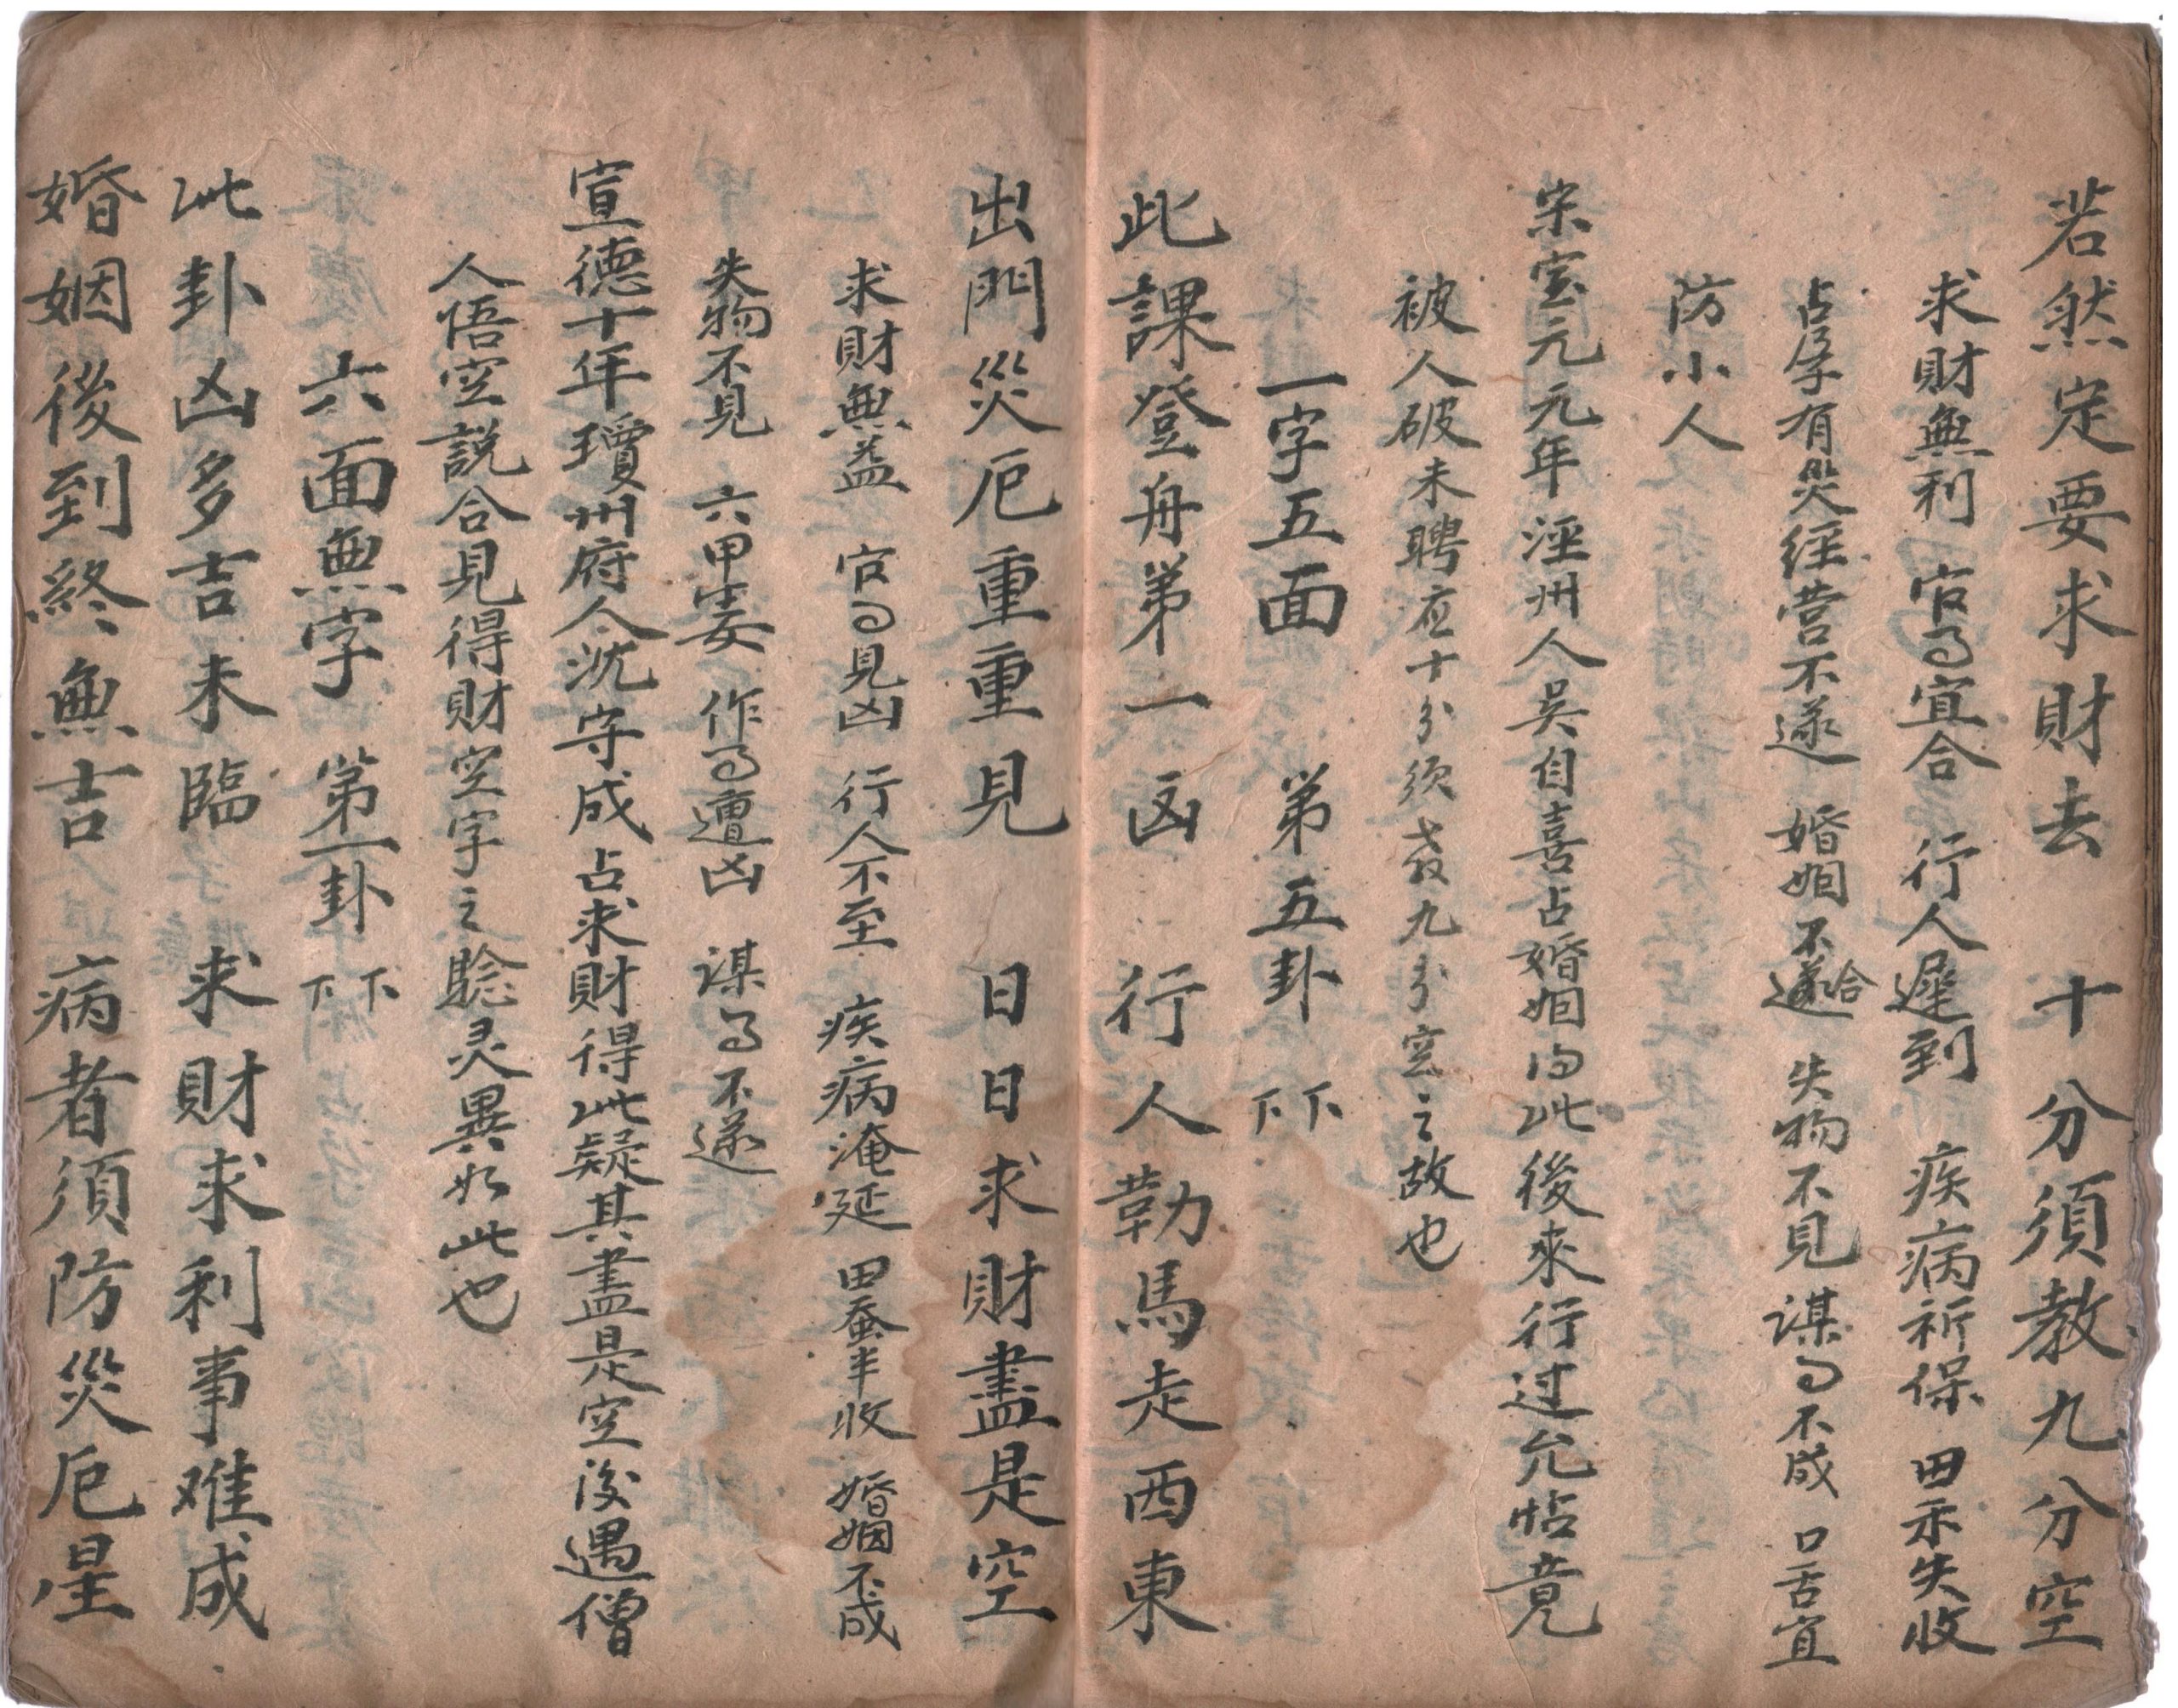 若然定要求財去　十分須教九分空
求財無利　官事宜合　行人遲到　疾病祈保　田禾失收
占孕有災　經营不遂　婚姻不遂合　失物不見　謀事不成　口舌宜
防小人
宋室元元年涇州人吳自喜占婚姻得此後來行过允帖竟
被人破未聘应十分须教九分空之故也
一字五面　第五卦　下下
此課登舟第一凶　行人勒馬走西東
出門災厄重重見　日日求財盡是空
求財無益　官事見凶　行人不至　疾病淹延　田蚕半收　婚姻不成
失物不見　六甲妾　作事遭凶　謀事不遂
宣德十年瓊州府人沈守成占求財得此疑其盡是空後遇僧
人悟空說合見得財空字之驗灵異如此也
六面無字　第一卦　下下
此卦凶多吉未臨　求財求利事难成
婚姻後到終無吉　病者須防災厄星